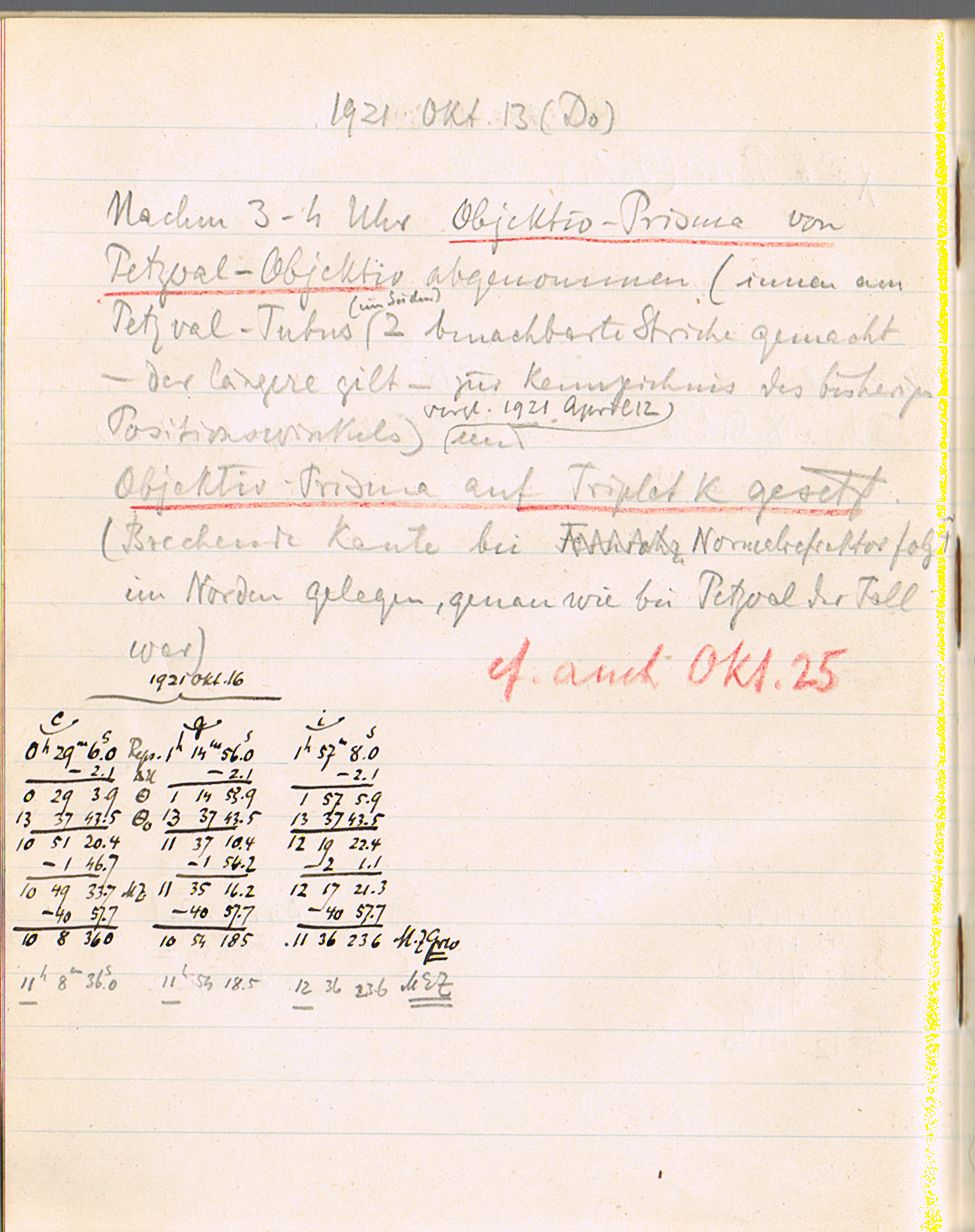 1921 Okt. 13 (Do)
Nachm 3-4 Uhr Objektiv-Prisma von
Petzval-Objektiv abgenommen (innen am
(im Süden)
Petzval-Tubus (2 benachbarte Striche gemacht
– der längere gilt – zur Kennzeichnis des bisherigen
vergl. 1921 April 12)
Positionswinkels) (und
Objektiv-Prisma auf Triplet K gesetzt.
(Brechende Kante bei Normalrefraktor folgt
im Norden gelegen, genau wie bei Petzval der Fall
war)
cf. auch Okt. 25
1921 Okt. 16
c g i
0h 29m 6.0s Regs. 1h 14m 56.0s 1h 57m 8.0s
– 2.1 ΔU – 2.1 – 2.1
0 29 3.9 Θ 1 14 53.9 1 57 5.9
13 37 43.5 Θ₀ 13 37 43.5 13 37 43.5
10 51 20.4 11 37 10.4 12 19 22.4
– 1 46.7 – 1 54.2 – 2 1.1
10 49 33.7 MZ 11 35 16.2 12 17 21.3
– 40 57.7 – 40 57.7 – 40 57.7
10 8 36.0 10 54 18.5 11 36 23.6 M.Z Grw
11h 8m 36.0s 11h 54 18.5 12 36 23.6 MEZ